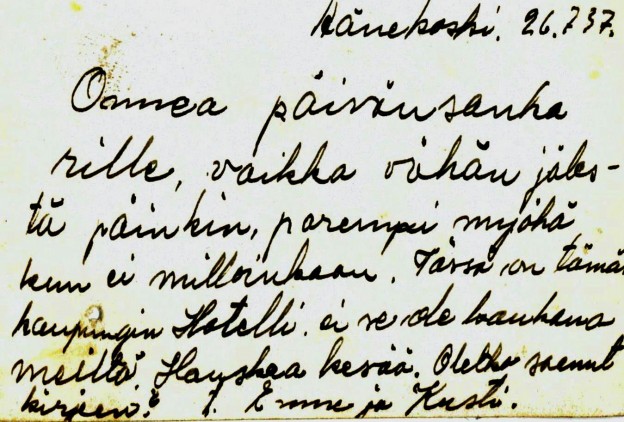 Äänekoski. 26.7 37.
Onnea päivänsanka
rille, vaikka vähän jäles-
tä päinkin, parempi myöhä
kun ei milloinkaan. Tässä on tämän
kaupungin Hotelli. ei se ole kaukana
meiltä. Hauskaa kesää. Oletko saanut
kirjeen? T. Emme ja Kusti.